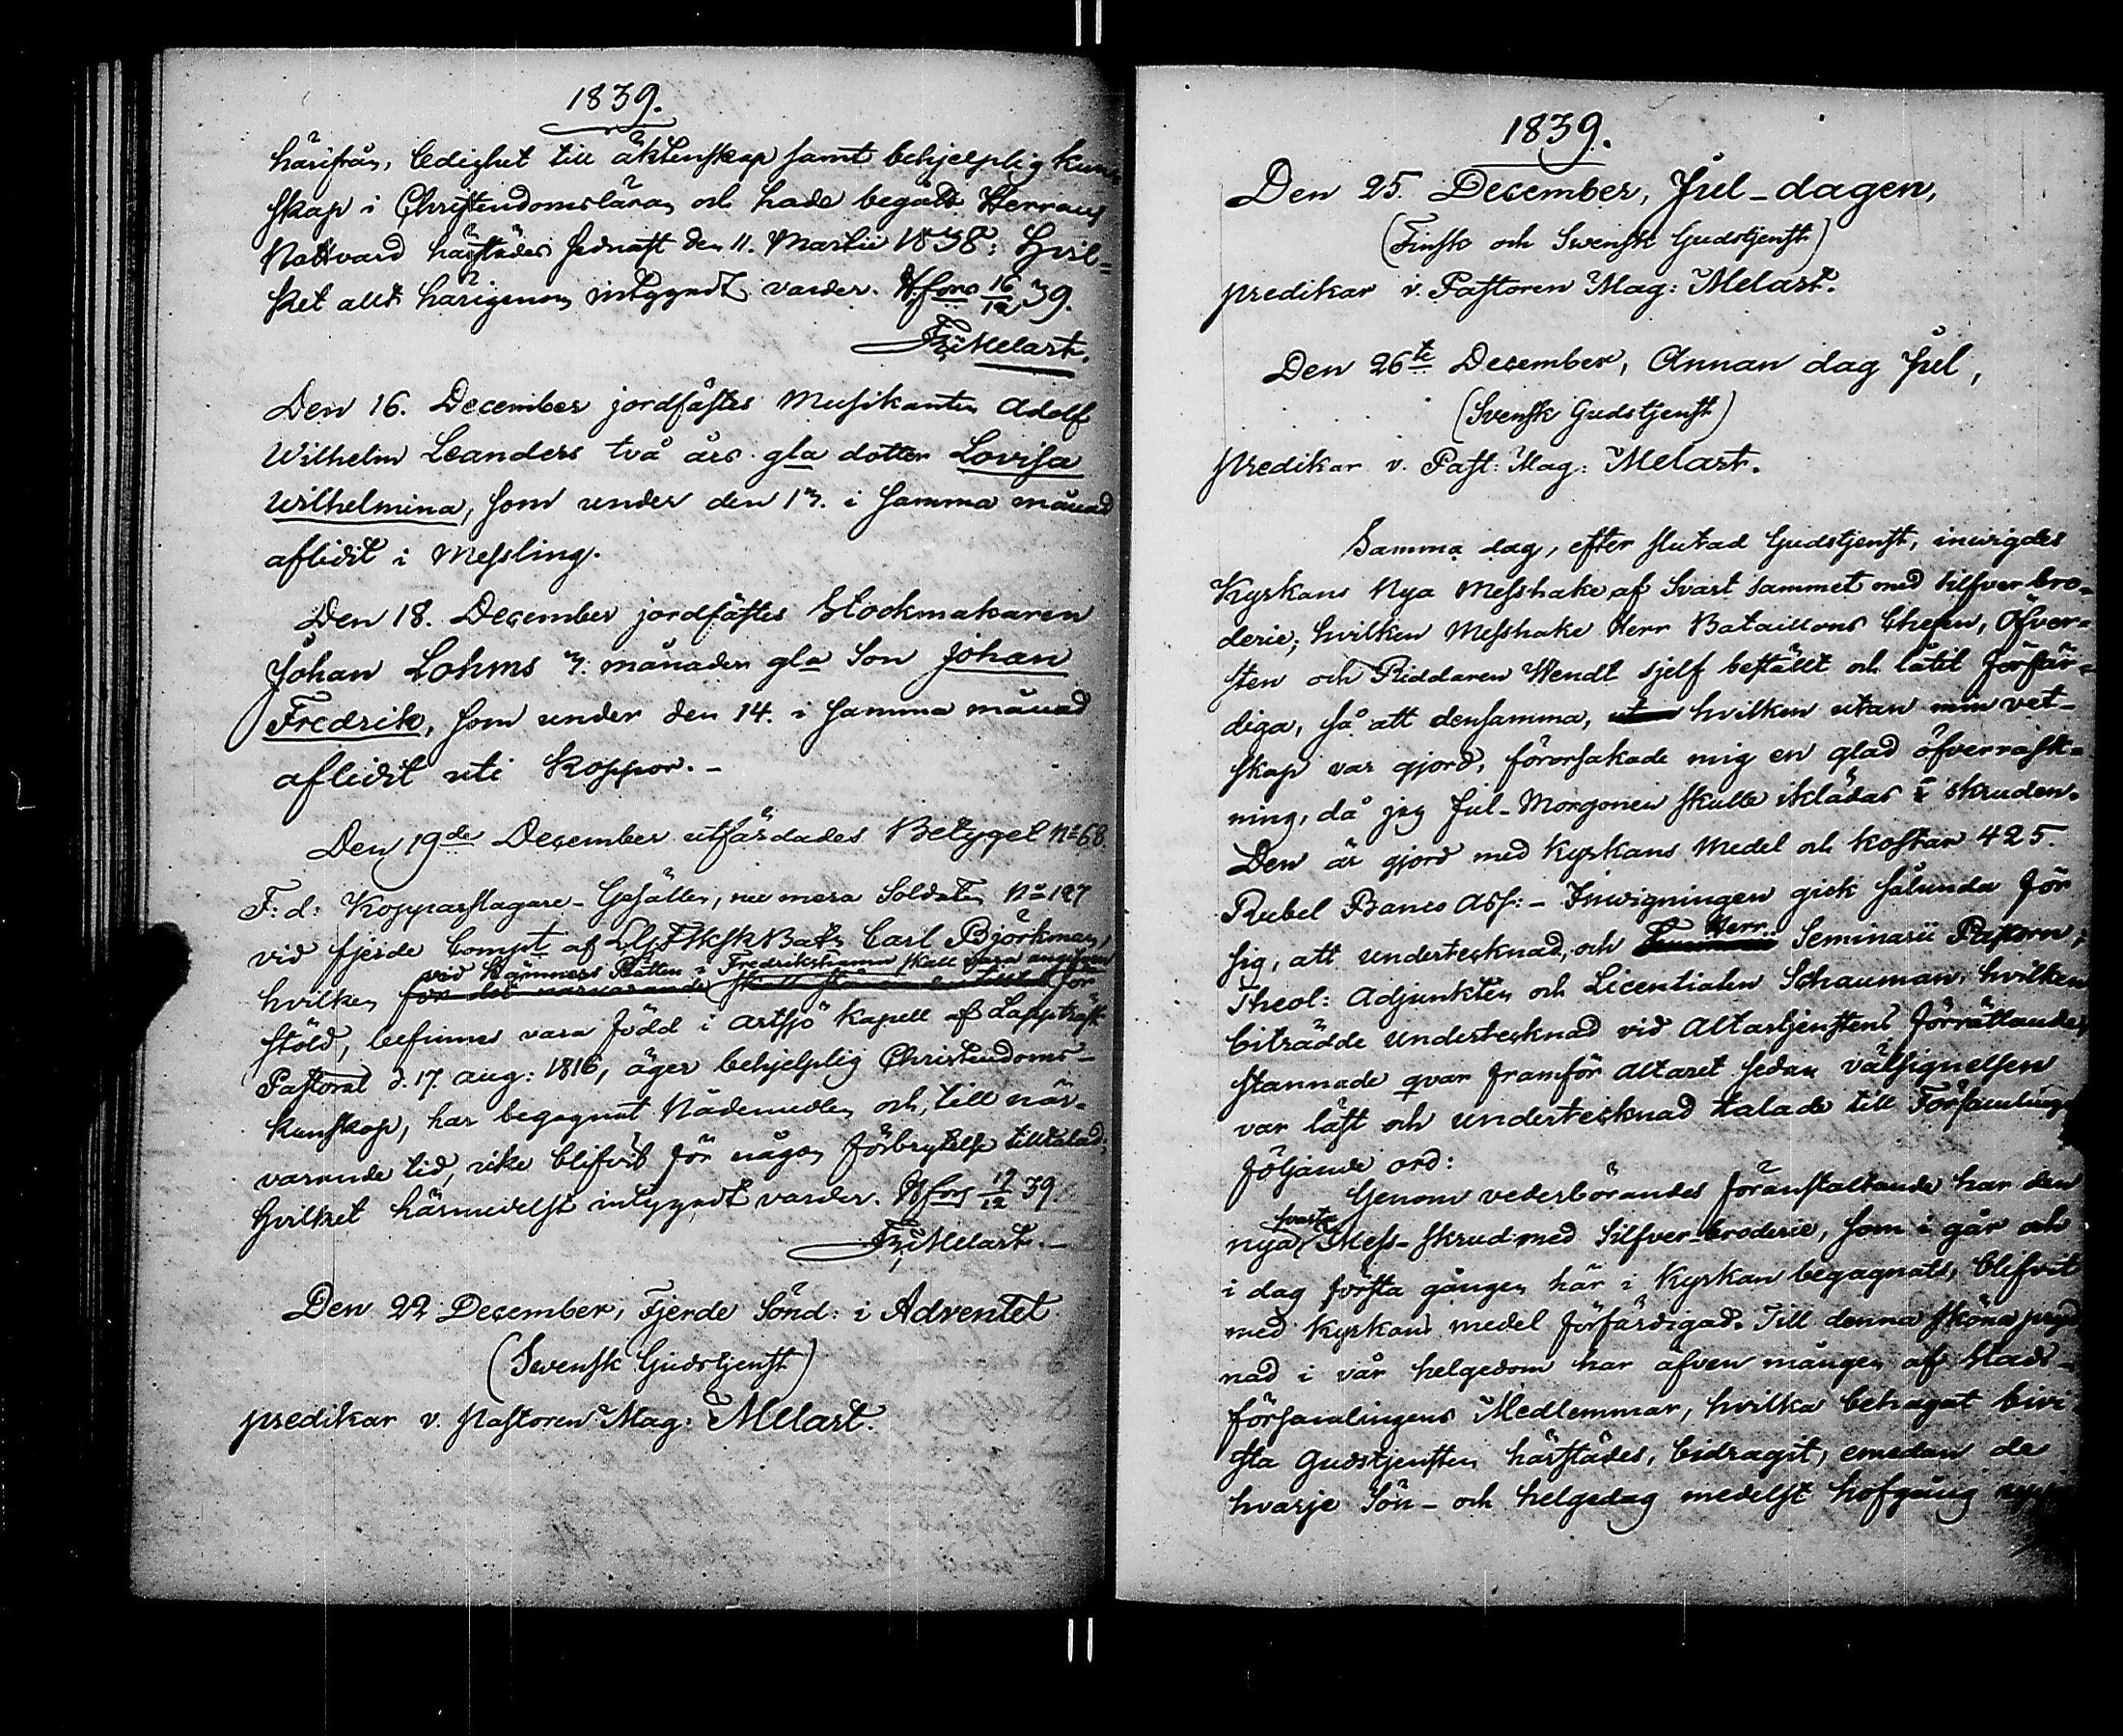 1839.
härifrån, ledighet till äktenskap samt behjelplig kun-
skap i Christendomsläran och hade begått Herrans
Nattvard härstädes sednast den 11. Martii 1838; Hvil-
ket allt härigenom intygadt varder. H:fors 16/12 39.
Melart.
Den 16. December jordfästes Musikanten Adolf
Wilhelm Leanders två års gla dotter Lovisa
Wilhelmina, som under den 13. i samma månad
aflidit i Messling.
Den 18. December jordfästes Stockmakaren
Johan Lohms 3. månader gla Son Johan
Fredrik, som under den 14. i samma månad
aflidit uti Koppor.-
Den 19de December utfärdades Betyget No 68.
F: d: Kopparslagare-Gesällen, nu mera Soldaten No 127
vid fjerde Compt af Carl Björkman,
vid Kämners Rätten i Fredrikshamn skall vara angifven
hvilken för
stöld, befinnes vara född i Artsjö Kapell af Lappträsk
Pastorat d. 17. Aug: 1816, äger behjelplig Christendoms-
kunskap, har begagnat Nådemedlen och, till när-
varande tid, icke blifvit för någon förbrytelse tilltalad;
Hvilket härmedelst intygadt varder. H:fors 19/12 39
Melart.-
Den 22 December, Fjerde Sönd: i Adventet
(Swensk Gudstjenst)
predikar v. Pastoren Mag: Melart.
1839.
Den 25. December, Jul-dagen,
(Finsk och Swensk Gudstjenst)
predikar v. Pastoren Mag: Melart.
Den 26te December, Annan dag Jul,
(Svensk Gudstjenst)
predikar v. Past: Mag: Melart.
Samma dag, efter slutad Gudstjenst, inwigdes
Kyrkans Nya Messhake af Svart Sammet med silfver bro-
derie; hvilken Messhake Herr Bataillons Chefen, Öfver-
sten och Riddaren Wendt sjelf beställt och låtit förfär-
diga, så att densamma, hvilken utan min vet-
skap var gjord, förorsakade mig en glad öfverrask-
ning, då jag Jul-Morgonen skulle iklädas i skruden.
Den är gjord med Kyrkans Medel och kostar 425.
Rubel Banco Ass:- Inwigningen gick sålunda för
sig, att undertecknad, och Herr Seminarii Pastorn,
Theol: Adjunkten och Licentiaten Schauman, hvilken
biträdde undertecknad vid Altartjenstens förrättande,
stannade qvar framför Altaret sedan välsignelsen
var läst och undertecknad talade till Församlingen
följande ord:
Genom vederbörandes föranstaltande har den
svarta
nya Mess-skrud med Silfver-broderie, som i går och
i dag första gången här i Kyrkan begagnats, blifvit
med Kyrkans medel förfärdigad. Till denna sköna pryd
nad i vår helgedom har äfven mången af Stads-
församlingens Medlemmar, hvilka behagat bivi-
sta Gudstjensten härstädes, bidragit, emedan de
hvarje Sön- och helgedag medelst håfgång